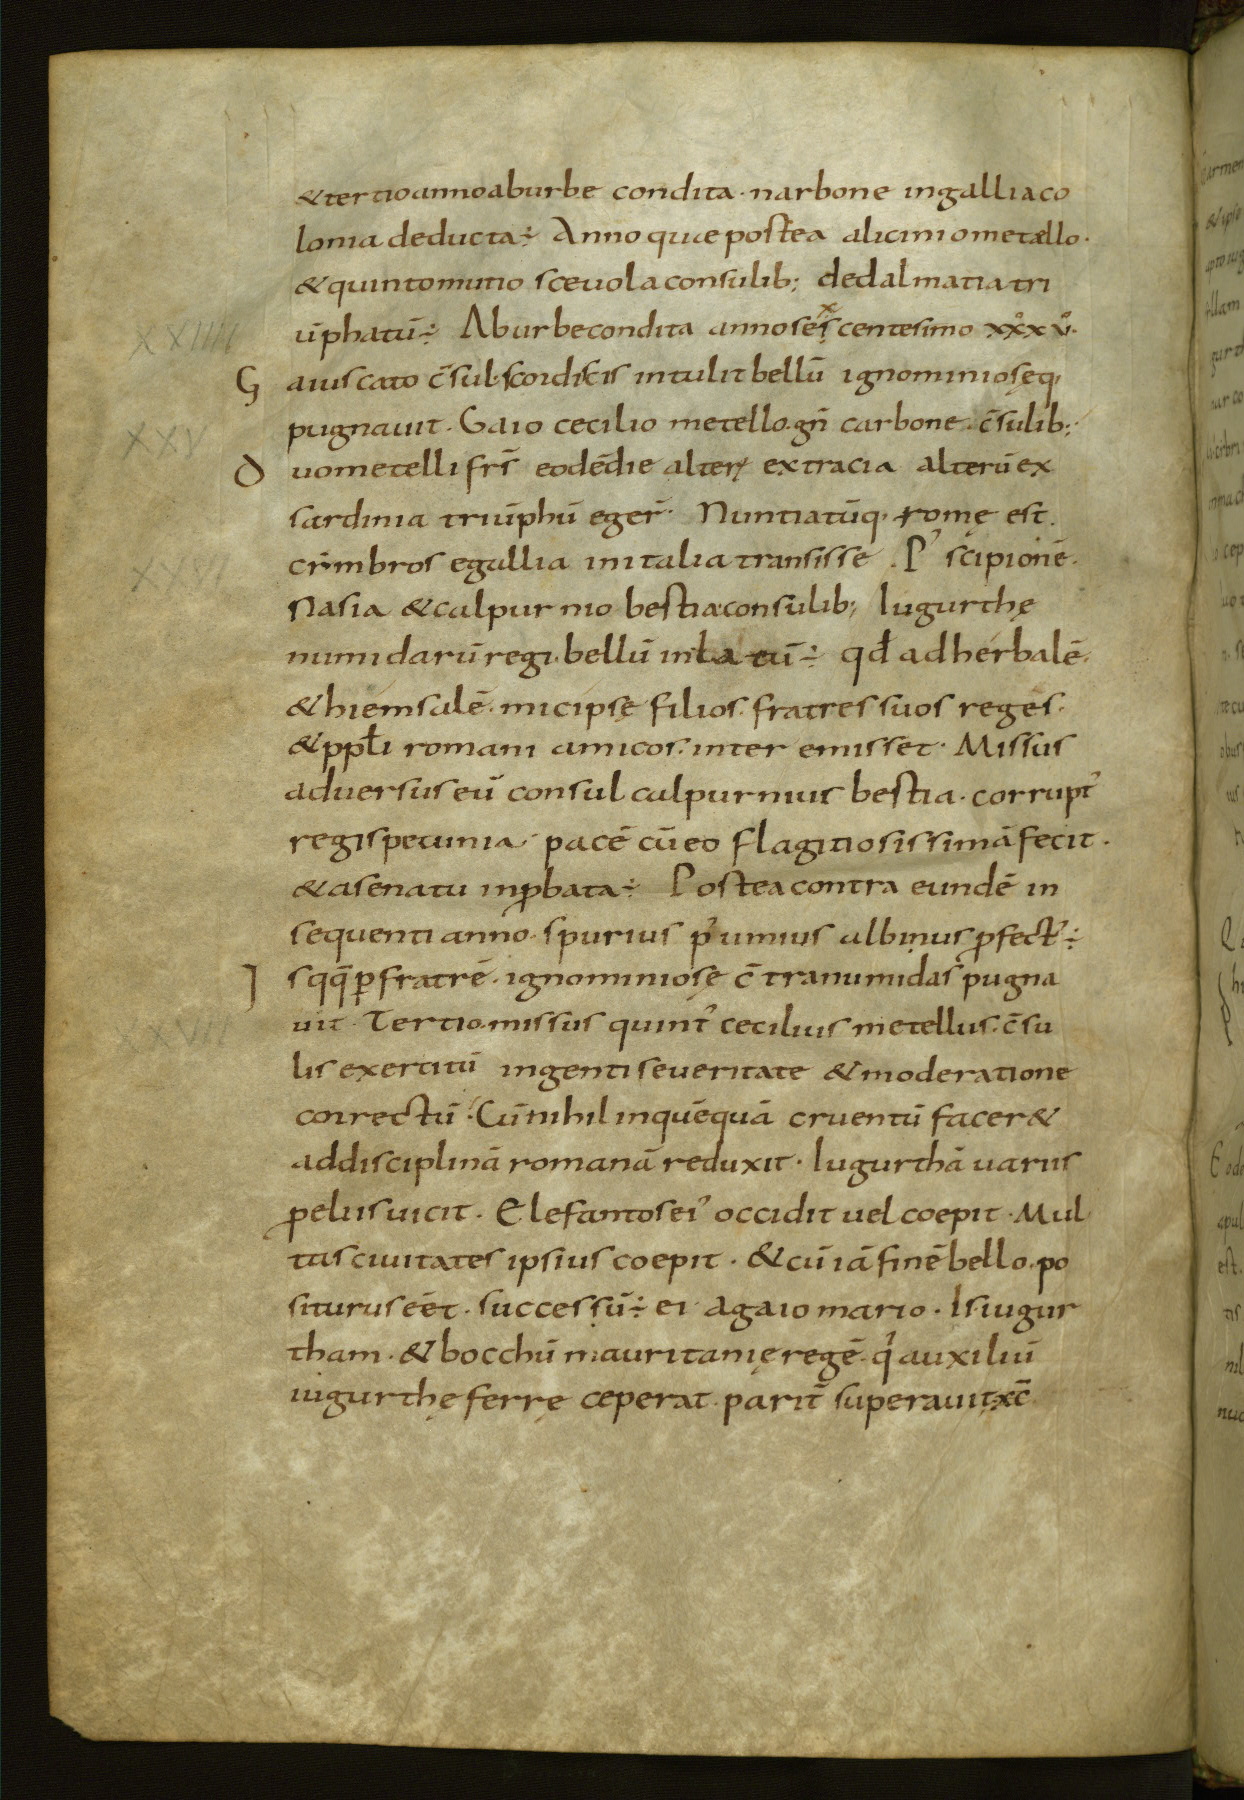 & tertio anno ab urbe condita· narbone in gallia co
lonia deducta ÷ Anno quae postea a licinio metællo·
& quinto mutio sceuola consulib; de dalmatia tri
ūphatū ÷ Ab urbe condita anno sexcentesimo xx̊xů·
XXIIII
G aius cato c̄sul· scordiscis intulit bellū ignominiosęq;
pugnauit· Gaio cecilio metello· gn̄ carbone· c̄sulib;
XXV
D uo metelli frs̄ eodē die alterꝝ ex tracia alterū ex
sardinia triūphū egeř· Nuntiatūq; romę est
cimbros e gallia in italia transisse. P' scipionē·
XXVI
Nasia & calpurnio bestia consulib; Iugurthę
numidarū regi· bellū inlatū ÷ qđ adherbalē·
& hiemsalē· micipsę filios· fratres suos reges·
& ppłi romani amicos· interemisset· Missus
aduersus eū consul calpurnius bestia· corrupt'
regis pecunia· pacē cū eo flagitiosissimā fecit·
& a senatu inꝓbata ÷ Postea contra eundē in
sequenti anno· spurius p'umius albinus ꝓfect' ÷
I s qq̄ ꝑ fratrē· ignominiosę c̄tra numidas pugna
XXVII
uit· Tertio missus quint' cecilius metellus· c̄su
lis exercitū ingenti seueritate & moderatione
correctū· Cū nihil in quēquā cruentū facer&
ad disciplinā romanā reduxit· Iugurthā uariis
ꝓeliis uicit· Elefantos ei' occidit uel coepit· Mul
tas ciuitates ipsius coepit· & cū iā finē bello· po
siturus eēt· successū ÷ ei a gaio mario· Is iugur
tham· & bocchū mauritanię regē· q' auxiliū
iugurthę ferrę ceperat· parit̄ superauit· xc̄